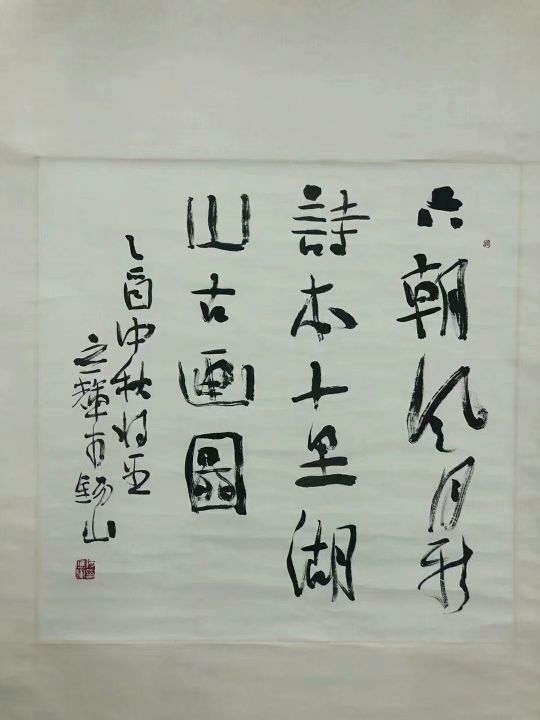 六朝风月新
詩本十里湖
山古画圖
乙酉中秋時至
之輝于錫山